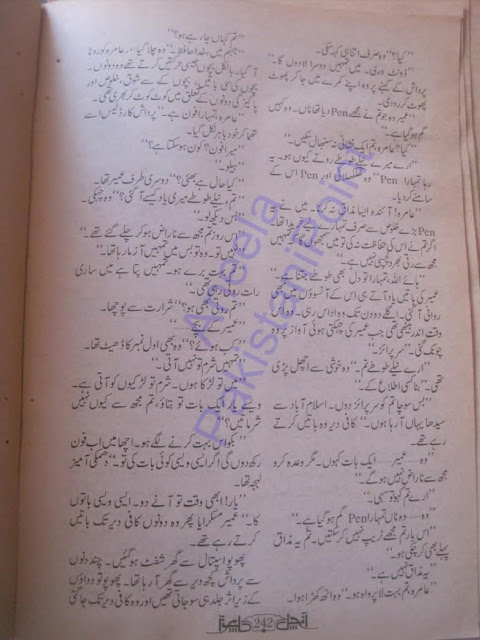 "کیا؟" وہ صرف اتنا ہی کہہ سکی۔
"ڈونٹ وری۔ میں تمہیں دوسرا لا دوں گا۔"
پرداش کے کہنے پر وہ اپنے کمرے میں جا کر پھوٹ
پھوٹ کر رو دی۔
"عامرہ وہ جو تم نے مجھے Pen دیا تھا ناں۔ وہ کہیں
گم ہو گیا ہے۔"
"کیا؟ عامرہ تم ایک نشانی نہ سنبھال سکیں۔"
"ارے میرے نیلے طوطے روتے کیوں ہو۔ یہ
رہا تمہارا Pen" وہ کھلکھلائی اور Pen اس کے
سامنے کر دیا۔
"عامرہ! آئندہ ایسا مذاق نہ کرنا۔ میں نے یہ
Pen بڑے خلوص سے صرف تمہارے لیے خریدا تھا۔
اگر تم نے اس کی حفاظت نہ کی تو میں سمجھوں گا کہ تمہیں
مجھ سے رتی بھر دلچسپی نہیں ہے۔"
"ہائے اللہ، تمہارا تو دل بھی طوطے جتنا ہے۔"
عمیر کی باتیں یاد آتے ہی اس کے آنسوؤں میں بھی
روانی آ گئی۔ اگلے دو دن تک وہ اداس رہی۔ وہ اس
وقت اندر بیٹھی تھی جب عمیر کی چہکتی ہوئی آواز پر وہ
چونک گئی۔ "سرپرائز۔"
"ارے نیلے طوطے تم۔" وہ خوشی سے اچھل پڑی
تھی۔ "بنا کسی اطلاع کے۔"
"بس سوچا تم کو سرپرائز دوں۔ اسلام آباد سے
سیدھا یہاں آ رہا ہوں۔" کافی دیر وہ باتیں کرتے
رہے تھے۔
"وہ...... عمیر...... ایک بات کہوں۔ مگر وعدہ کرو
مجھ سے ناراض نہیں ہو گے۔"
"ارے تم کہو تو سہی۔"
"وہ...... وہ ناں تمہارا Pen گم ہو گیا ہے۔"
"اس بار تم مجھے ٹریپ نہیں کر سکتیں۔ تم یہ مذاق
پہلے بھی کر چکی ہو۔"
"یہ مذاق نہیں ہے۔"
"عامرہ، تم بہت لاپرواہ ہو۔" وہ اٹھ کھڑا ہوا۔
"تم کہاں جا رہے ہو؟"
"جہنم میں، خدا حافظ۔" وہ چلا گیا۔ عامرہ کو رونا
آ گیا۔ بالکل بچوں جیسی حرکتیں کرتے تھے وہ دونوں۔
بچوں کی سی باتیں، بچوں کے سے شوق، خلوص اور
پاکیزگی دونوں کے تعلق میں کوٹ کوٹ کر بھری تھی۔
"عامرہ، تمہارا فون ہے۔" پرداش کارڈلیس اسے
تھما کر خود باہر نکل گیا۔
"میرا فون؟ کون ہو سکتا ہے؟"
"ہیلو۔"
"کیا حال ہے بھئی؟" دوسری طرف عمیر تھا۔
"تم، نیلے طوطے میری یاد کیسے آ گئی؟" وہ چہکی۔
"بس دیکھ لو۔"
"اس روز تم مجھ سے ناراض ہو کر چلے گئے تھے۔"
"نہیں تو۔ وہ تو بس میں تمہیں آزما رہا تھا۔"
"تم بہت برے ہو۔ تمہیں پتا ہے میں ساری
رات روتی رہی تھی۔"
"تم روئی بھی ہو؟" شرارت سے پوچھا۔
"عمیر کے بچے......"
"کب ہوئے؟" وہ بھی اول نمبر کا ڈھیٹ تھا۔
"تمہیں شرم تو نہیں آتی۔"
"میں تو لڑکا ہوں۔ شرم تو لڑکیوں کو آتی ہے۔
ویسے یار ایک بات تو بتاؤ، تم مجھ سے کیوں نہیں
شرماتیں؟"
"بکواس بہت کرنے لگے ہو۔ اچھا میں اب فون
رکھ دوں گی اگر ایسی ویسی کوئی بات کی تو۔" دھمکی آمیز
لہجہ تھا۔
"یار! ابھی وقت تو آنے دو۔ ایسی ویسی باتوں
کا۔" عمیر مسکرایا پھر وہ دونوں کافی دیر تک باتیں
کرتے رہے تھے۔
پھوپو اسپتال سے گھر شفٹ ہو گئیں۔ چند دنوں
سے پرداش کچھ دیر سے گھر آ رہا تھا۔ پھوپو تو دواؤں
کے زیر اثر جلد ہی سو جاتی تھیں اور وہ کافی دیر تک جاگتی
آنچل 242
Aneela
PakistaniPoint